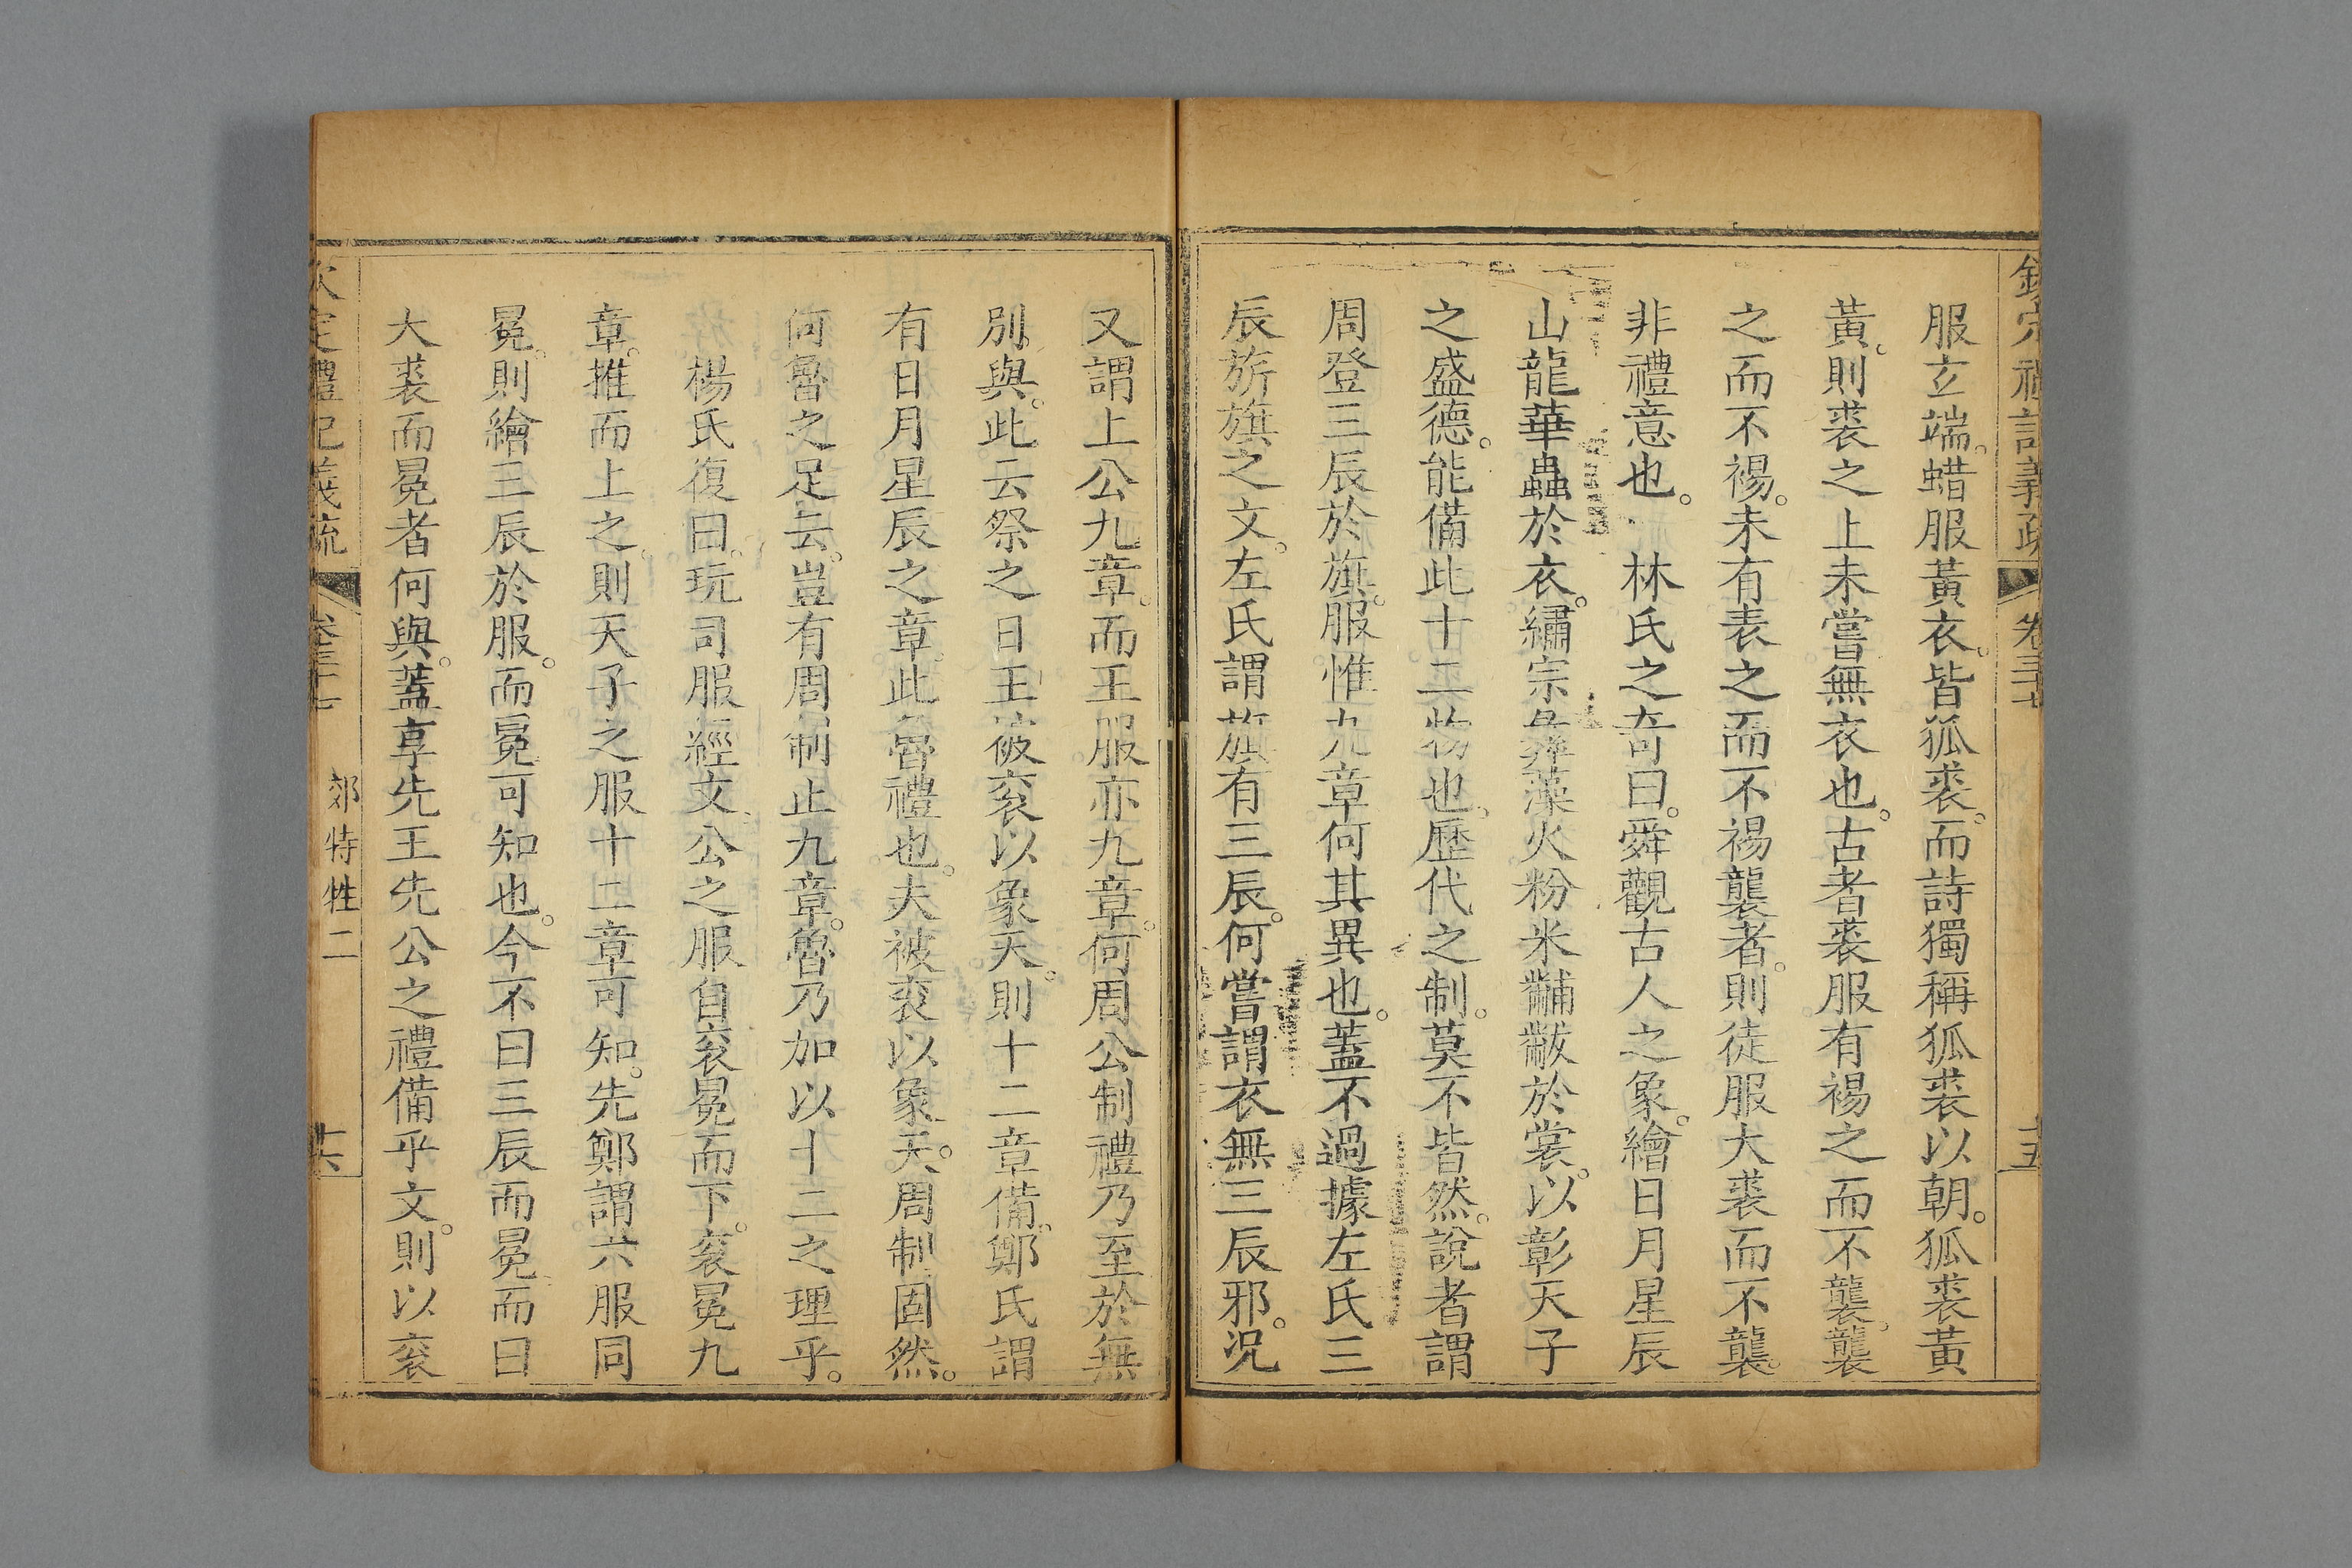 欽定禮記義疏 卷三十七 十五
服玄端。蜡服黃衣。皆狐裘。而詩獨稱狐裘以朝。狐裘黃
黃。則裘之上未嘗無衣也。古者裘服有裼之而不襲。襲
之而不裼。未有表之而不裼襲者。則徒服大裘而不襲。
非禮意也。 林氏之奇曰。舜觀古人之象。繪日月星辰
山龍華蟲於衣。繡宗彝藻火粉米黼黻於裳。以彰天子
之盛德。能備此十二物也。歷代之制。莫不皆然。說者謂
周登三辰於旗。服惟九章何其異也。蓋不過據左氏三
辰旂旗之文。左氏謂旗有三辰。何嘗謂衣無三辰邪。況
又謂上公九章。而王服亦九章。何周公制禮乃至於無
別與。此云祭之日王被衮以象天。則十二章備。鄭氏謂
有日月星辰之章。此魯禮也。夫被衮以象天。周制固然。
何魯之足云。豈有周制止九章。魯乃加以十二之理乎。
楊氏復曰。玩司服經文。公之服自衮冕而下。衮冕九
章。推而上之。則天子之服十二章可知。先鄭謂六服同
冕。則繪三辰於服。而冕可知也。今不曰三辰而冕而曰
大裘而冕者何與。蓋享先王先公之禮備乎文。則以衮
欽定禮記義疏 卷三十七 郊特牲二 十六